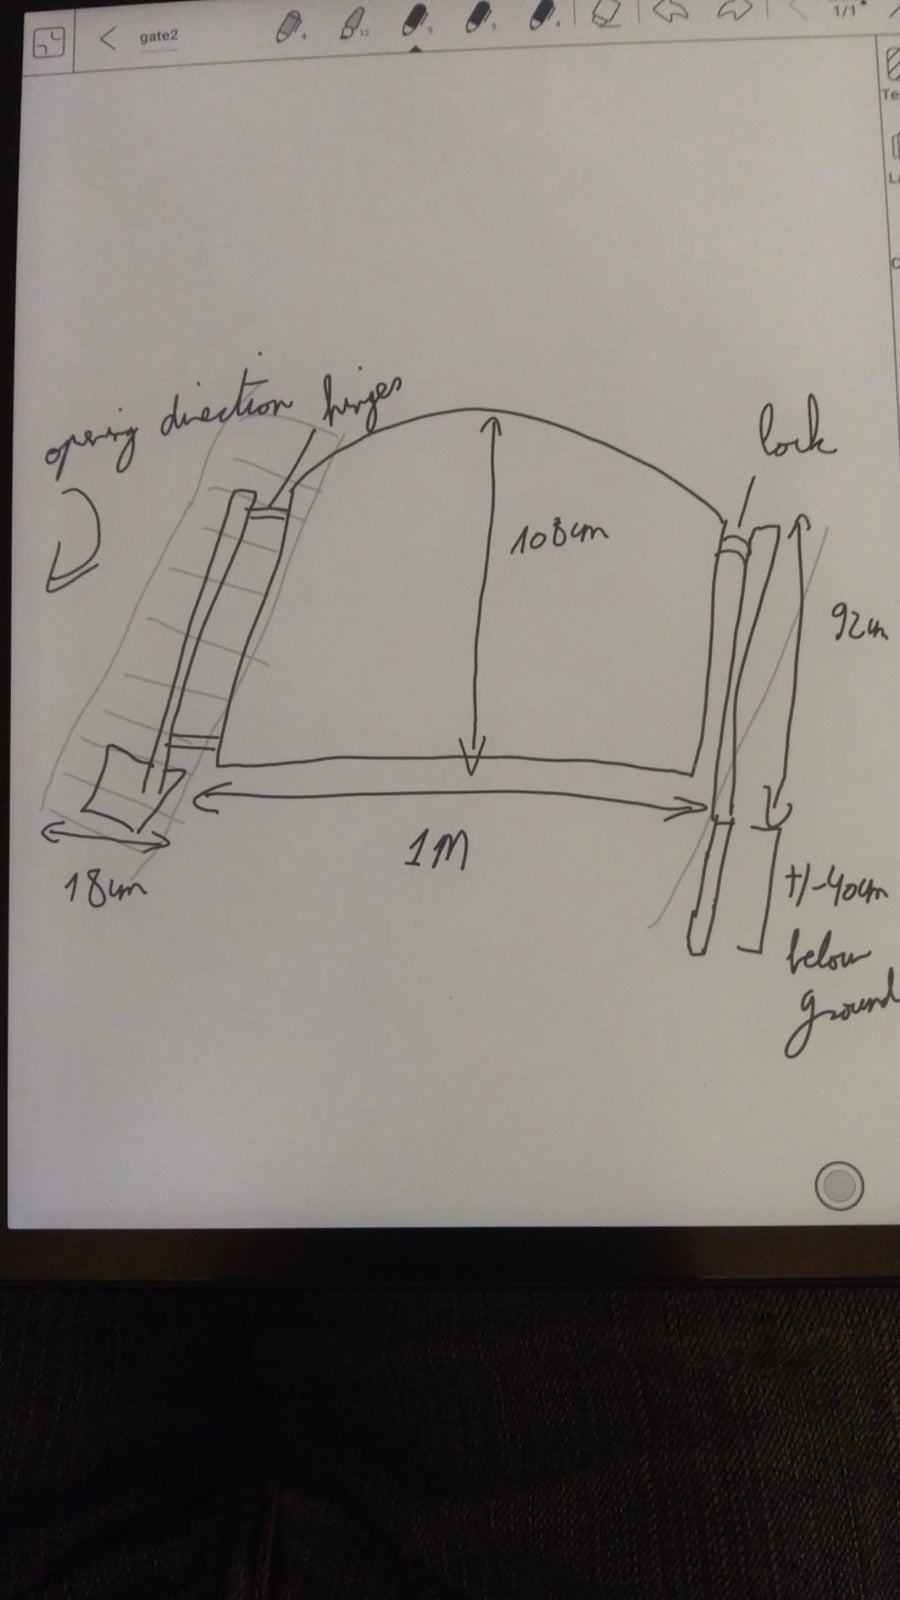 gate2
1/1
Te
L
opening direction
hinges
lock
108cm
92cm
1M
18cm
+/-40cm
below
ground